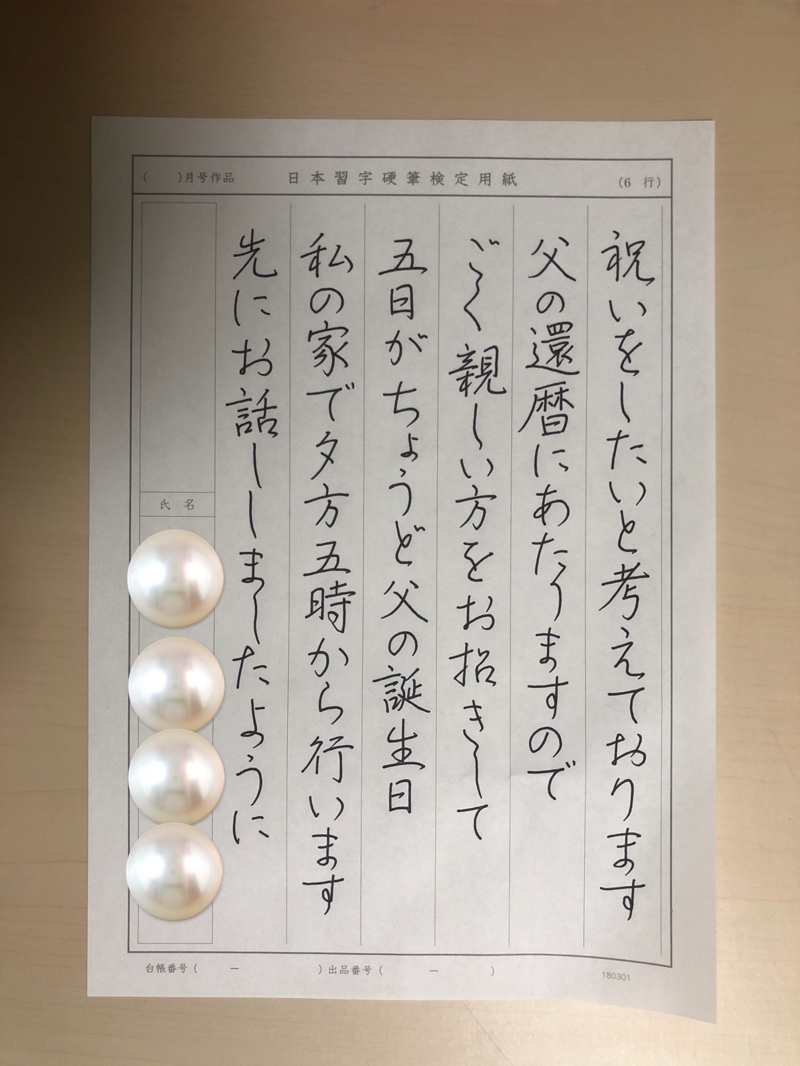 ( )月号作品 日本習字硬筆検定用紙 (6 行)
祝いをしたいと考えております
父の還暦にあたりますので
ごく親しい方をお招きして
五日がちょうど父の誕生日
私の家で夕方五時から行います
先にお話ししましたように
氏名
台帳番号( ー )出品番号( ー )
180301